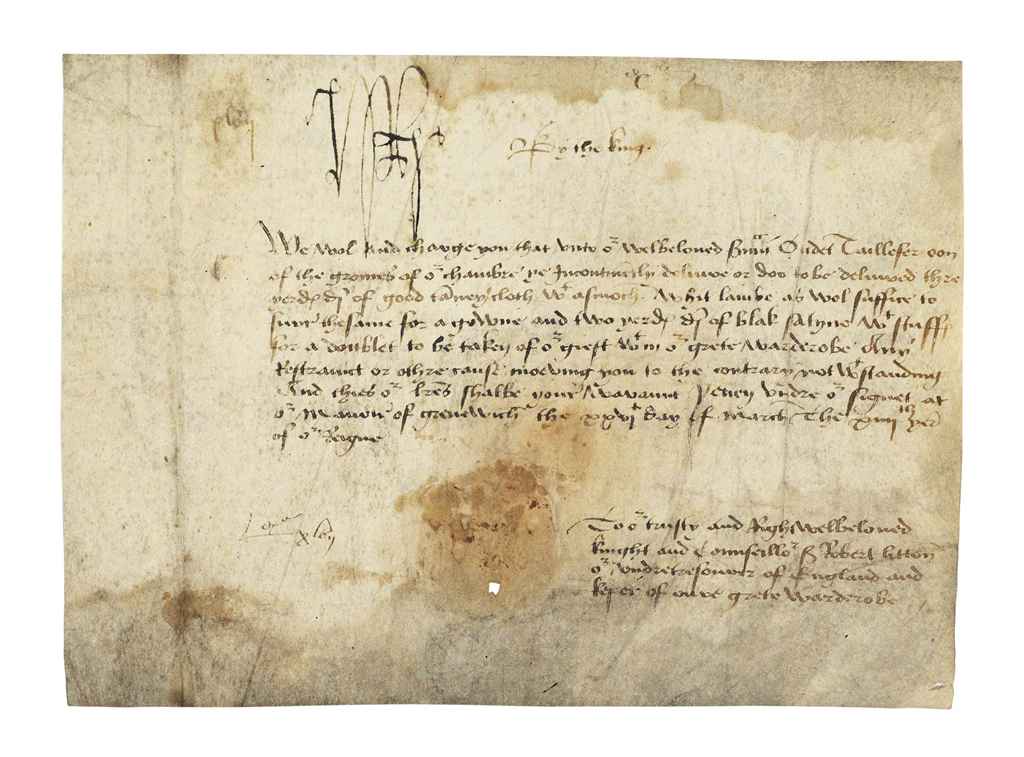 HR
By the king.
We wol and charge you that unto oʳ welbeloved sʳuᵃnt Oudet Taillefer oon
of the gromes of oʳ chambre ye Incontinently deliuoe or doo to be deliuoed thre
yerdꝭ dj of good tawney cloth wᵗ asmoch whit lambe as wol suffice to
furr thesame for a gowne and two yerdꝭ dj of blak satyne wᵗ stuff
for a doublet to be taken of oʳ gieft wᵗin oʳ grete warderobe Any
Restrainct or othre cause moeving you to the contrary not wᵗstanding
And thies oʳ lr̃es shalbe your warraunt Yeven undre oʳ signet at
oʳ Manoir of grenewich the xxvj day of March The xiiijᵗʰ yer
of oʳ Reigne
Too oʳ trusty and Right welbeloved
knight and Counseilloʳ Sʳ Robert litton
oʳ undretresourer of England and
keper of oure grete warderobe